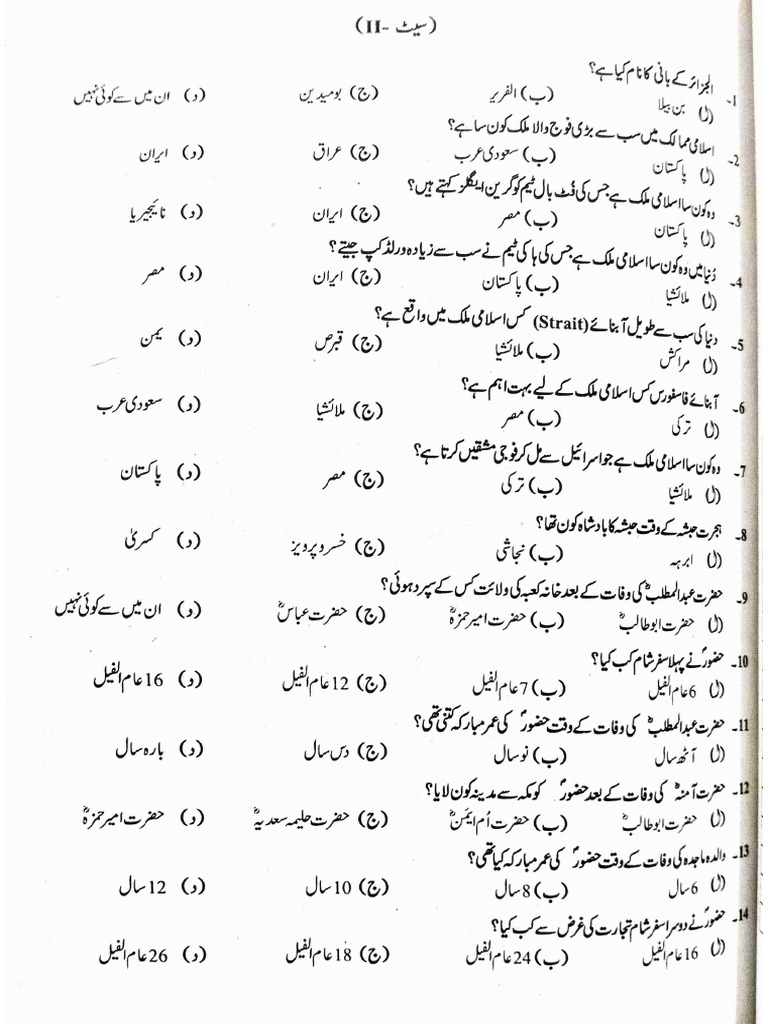 (سیٹ -II)
1۔ الجزائر کے بانی کا نام کیا ہے؟
(ل) بن بیلا (ب) الفریر (ج) بومیدین (د) ان میں سے کوئی نہیں
2۔ اسلامی ممالک میں سب سے بڑی فوج والا ملک کون سا ہے؟
(ل) پاکستان (ب) سعودی عرب (ج) عراق (د) ایران
3۔ وہ کون سا اسلامی ملک ہے جس کی فٹ بال ٹیم کو گرین ایگلز کہتے ہیں؟
(ل) پاکستان (ب) مصر (ج) ایران (د) نائیجیریا
4۔ دُنیا میں وہ کون سا اسلامی ملک ہے جس کی ہاکی ٹیم نے سب سے زیادہ ورلڈ کپ جیتے؟
(ل) ملائشیا (ب) پاکستان (ج) ایران (د) مصر
5۔ دنیا کی سب سے طویل آبنائے (Strait) کس اسلامی ملک میں واقع ہے؟
(ل) مراکش (ب) ملائشیا (ج) قبرص (د) یمن
6۔ آبنائے فاسفورس کس اسلامی ملک کے لیے بہت اہم ہے؟
(ل) ترکی (ب) مصر (ج) ملائشیا (د) سعودی عرب
7۔ وہ کون سا اسلامی ملک ہے جو اسرائیل سے مل کر فوجی مشقیں کرتا ہے؟
(ل) ملائشیا (ب) ترکی (ج) مصر (د) پاکستان
8۔ ہجرت حبشہ کے وقت حبشہ کا بادشاہ کون تھا؟
(ل) ابرہہ (ب) نجاشی (ج) خسرو پرویز (د) کسریٰ
9۔ حضرت عبدالمطلبؓ کی وفات کے بعد خانہ کعبہ کی ولائت کس کے سپرد ہوئی؟
(ل) حضرت ابوطالبؓ (ب) حضرت امیر حمزہؓ (ج) حضرت عباسؓ (د) ان میں سے کوئی نہیں
10۔ حضورؐ نے پہلا سفر شام کب کیا؟
(ل) 6 عام الفیل (ب) 7 عام الفیل (ج) 12 عام الفیل (د) 16 عام الفیل
11۔ حضرت عبدالمطلبؓ کی وفات کے وقت حضورؐ کی عمر مبارکہ کتنی تھی؟
(ل) آٹھ سال (ب) نو سال (ج) دس سال (د) بارہ سال
12۔ حضرت آمنہؓ کی وفات کے بعد حضورؐ کو مکہ سے مدینہ کون لایا؟
(ل) حضرت ابوطالبؓ (ب) حضرت اُم ایمَنؓ (ج) حضرت حلیمہ سعدیہؓ (د) حضرت امیر حمزہؓ
13۔ والدہ ماجدہ کی وفات کے وقت حضورؐ کی عمر مبارکہ کیا تھی؟
(ل) 6 سال (ب) 8 سال (ج) 10 سال (د) 12 سال
14۔ حضورؐ نے دوسرا سفر شام تجارت کی غرض سے کب کیا؟
(ل) 16 عام الفیل (ب) 24 عام الفیل (ج) 18 عام الفیل (د) 26 عام الفیل